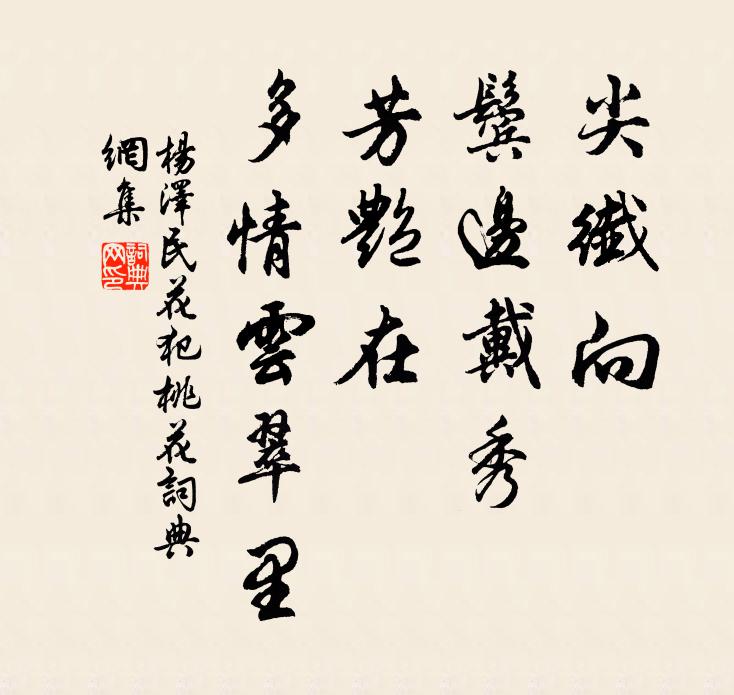 尖纖向
鬢邊戴秀
芳艷在
多情雲翠里
楊澤民花犯桃花詞典
網集
詞典網印